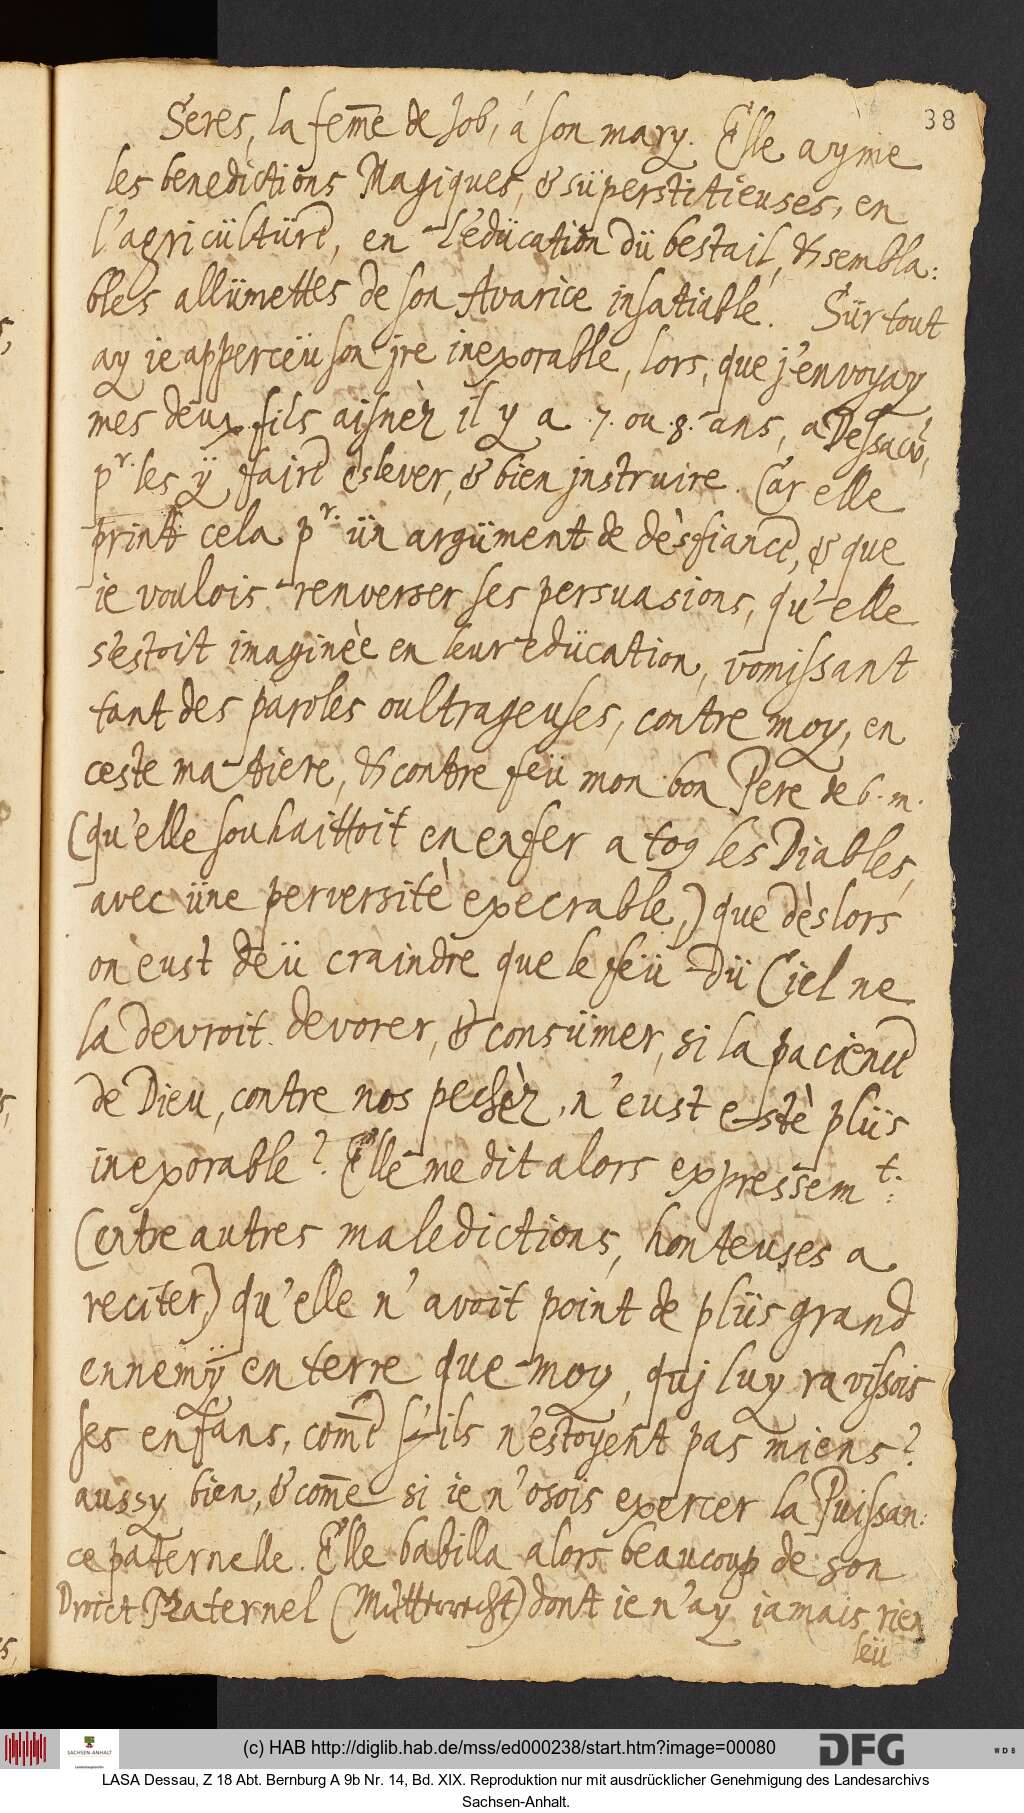 38
Seres, la fem̄e de Job, á son mary. Elle ayme
les benedictions Magiques, & süperstitieuses, en
l'agricültüre, en l'edücation dü bestail, & sembla:
bles allümettes de son Avarice insatiable. Sür tout
ay ie apperceü son jre inexorable, lors, que j'envoyay
mes deux fils aisnèz il y a .7. ou .8. ans, a Dessaw,
pr. les ÿ faire eslever, & bien jnstruire. Car elle
print cela pr. ün argüment de dèsfiance, & que
ie voulois renverser ses persuasions, qu'elle
s'estoit imaginèe en leur edücation, vomissant
tant des paroles oultrageuses, contre moy, en
ceste matiere, & contre feü mon bon Pere de b. m.
(qu'elle souhaittoit en enfer a to9 les Diables,
avec üne perversitè execrable,) que dèslors
on eust deü craindre que le feü dü Ciel ne
la devroit devorer, & consümer, si la pacience
de Dieu, contre nos pechèz, n'eust estè plüs
inexorable? Elle me dit alors expressemt:
(entre autres maledictions, honteuses a
reciter,) qu'elle n'avoit point de plüs grand
ennemÿ en terre que moy, quj luy ravissois
ses enfans, com̄e s'ils n'estoyent pas miens?
aussy bien, & com̄e si ie n'osois exercer la Puissan:
ce paternelle. Elle babilla alors beaucoup de son
Droict Maternel (Mutterrecht) dont ie n'ay jamais rien
leü
(c) HAB http://diglib.hab.de/mss/ed000238/start.htm?image=00080
SACHSEN-ANHALT
DFG
WDB
LASA Dessau, Z 18 Abt. Bernburg A 9b Nr. 14, Bd. XIX. Reproduktion nur mit ausdrücklicher Genehmigung des Landesarchivs
Sachsen-Anhalt.